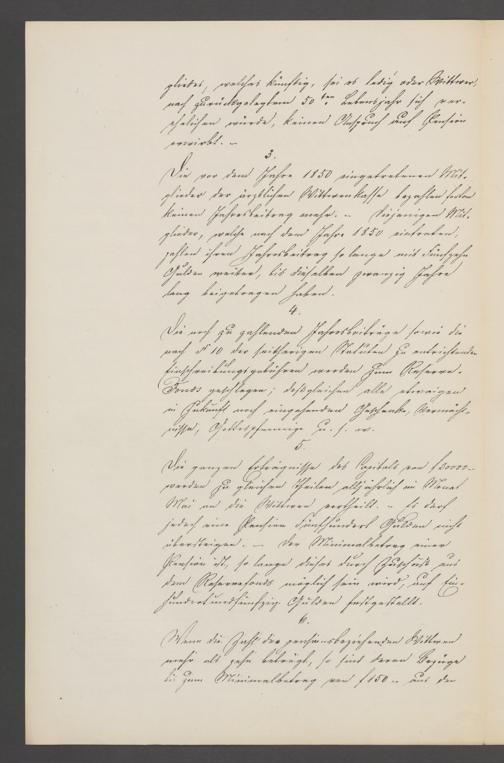 gliedes, welches künftig, sei es ledig oder Wittwer,
nach zurückgelegtem 50ten Lebensjahr sich ver-
ehelichen würde, keinen Anspruch auf Pension
erwirbt. –
3.
Die vor dem Jahre 1850 eingetretenen Mit-
glieder der ärztlichen Wittwenkasse bezahlen
keinen Jahresbeitrag mehr. – Diejenigen Mit-
glieder, welche nach dem Jahre 1850 eintraten,
zahlen ihren Jahresbeitrag so lange mit Fünfzehn
Gulden weiter, bis dieselben zwanzig Jahre
lang beigetragen haben.
4.
Die noch zu zahlenden Jahresbeiträge sowie die
nach § 10 der seitherigen Statuten zu entrichtenden
Einschreibungsgebühren werden zum Reserve-
Fonds geschlagen; desgleichen alle etwaigen
in Zukunft noch eingehenden Geschenke, Vermächt-
nisse, Gottespfennige u. s. w.
5.
Die ganzen Erträgnisse des Capitals von
werden zu gleichen Theilen alljährlich im Monat
Mai an die Wittwen vertheilt. – Es darf
jedoch eine Pension Fünfhundert Gulden nicht
übersteigen. – Der Minimalbetrag einer
Pension ist, so lange dieses durch Zuschuß aus
dem Reservefonds möglich sein wird, auf Ein-
hundertundfünfzig Gulden festgestellt.
6.
Wenn die Zahl der pensionsbeziehenden Wittwen
mehr als zehn beträgt, so sind deren Bezüge
bis zum Minimalbetrag von f 150 – aus den